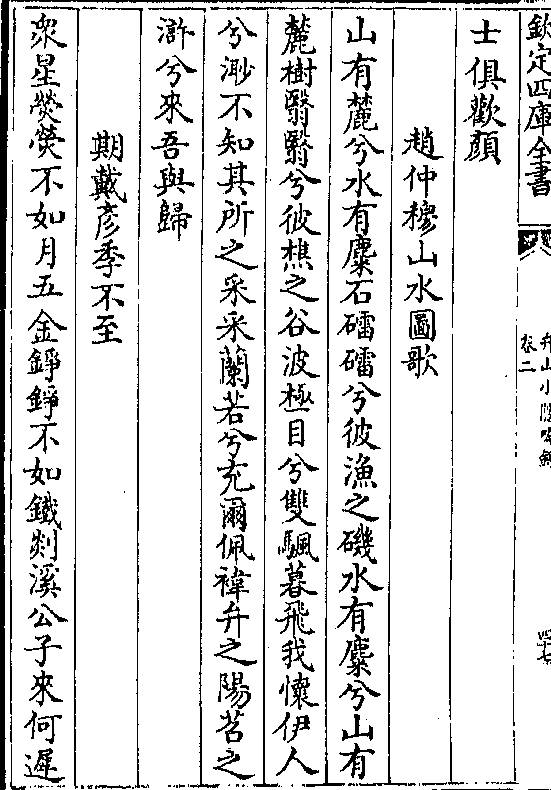 欽定四庫全書
弁山小隱吟錄
卷二
四十七
士俱歡顔
趙仲穆山水圖歌
山有麓兮水有麋石礌礌兮彼漁之磯水有麋兮山有
麓樹翳翳兮彼樵之谷波極目兮雙颿暮飛我懷伊人
兮渺不知其所之采采蘭若兮充爾佩褘弁之陽苕之
滸兮來吾與歸
期戴彦季不至
衆星熒熒不如月五金錚錚不如鐵剡溪公子來何遲